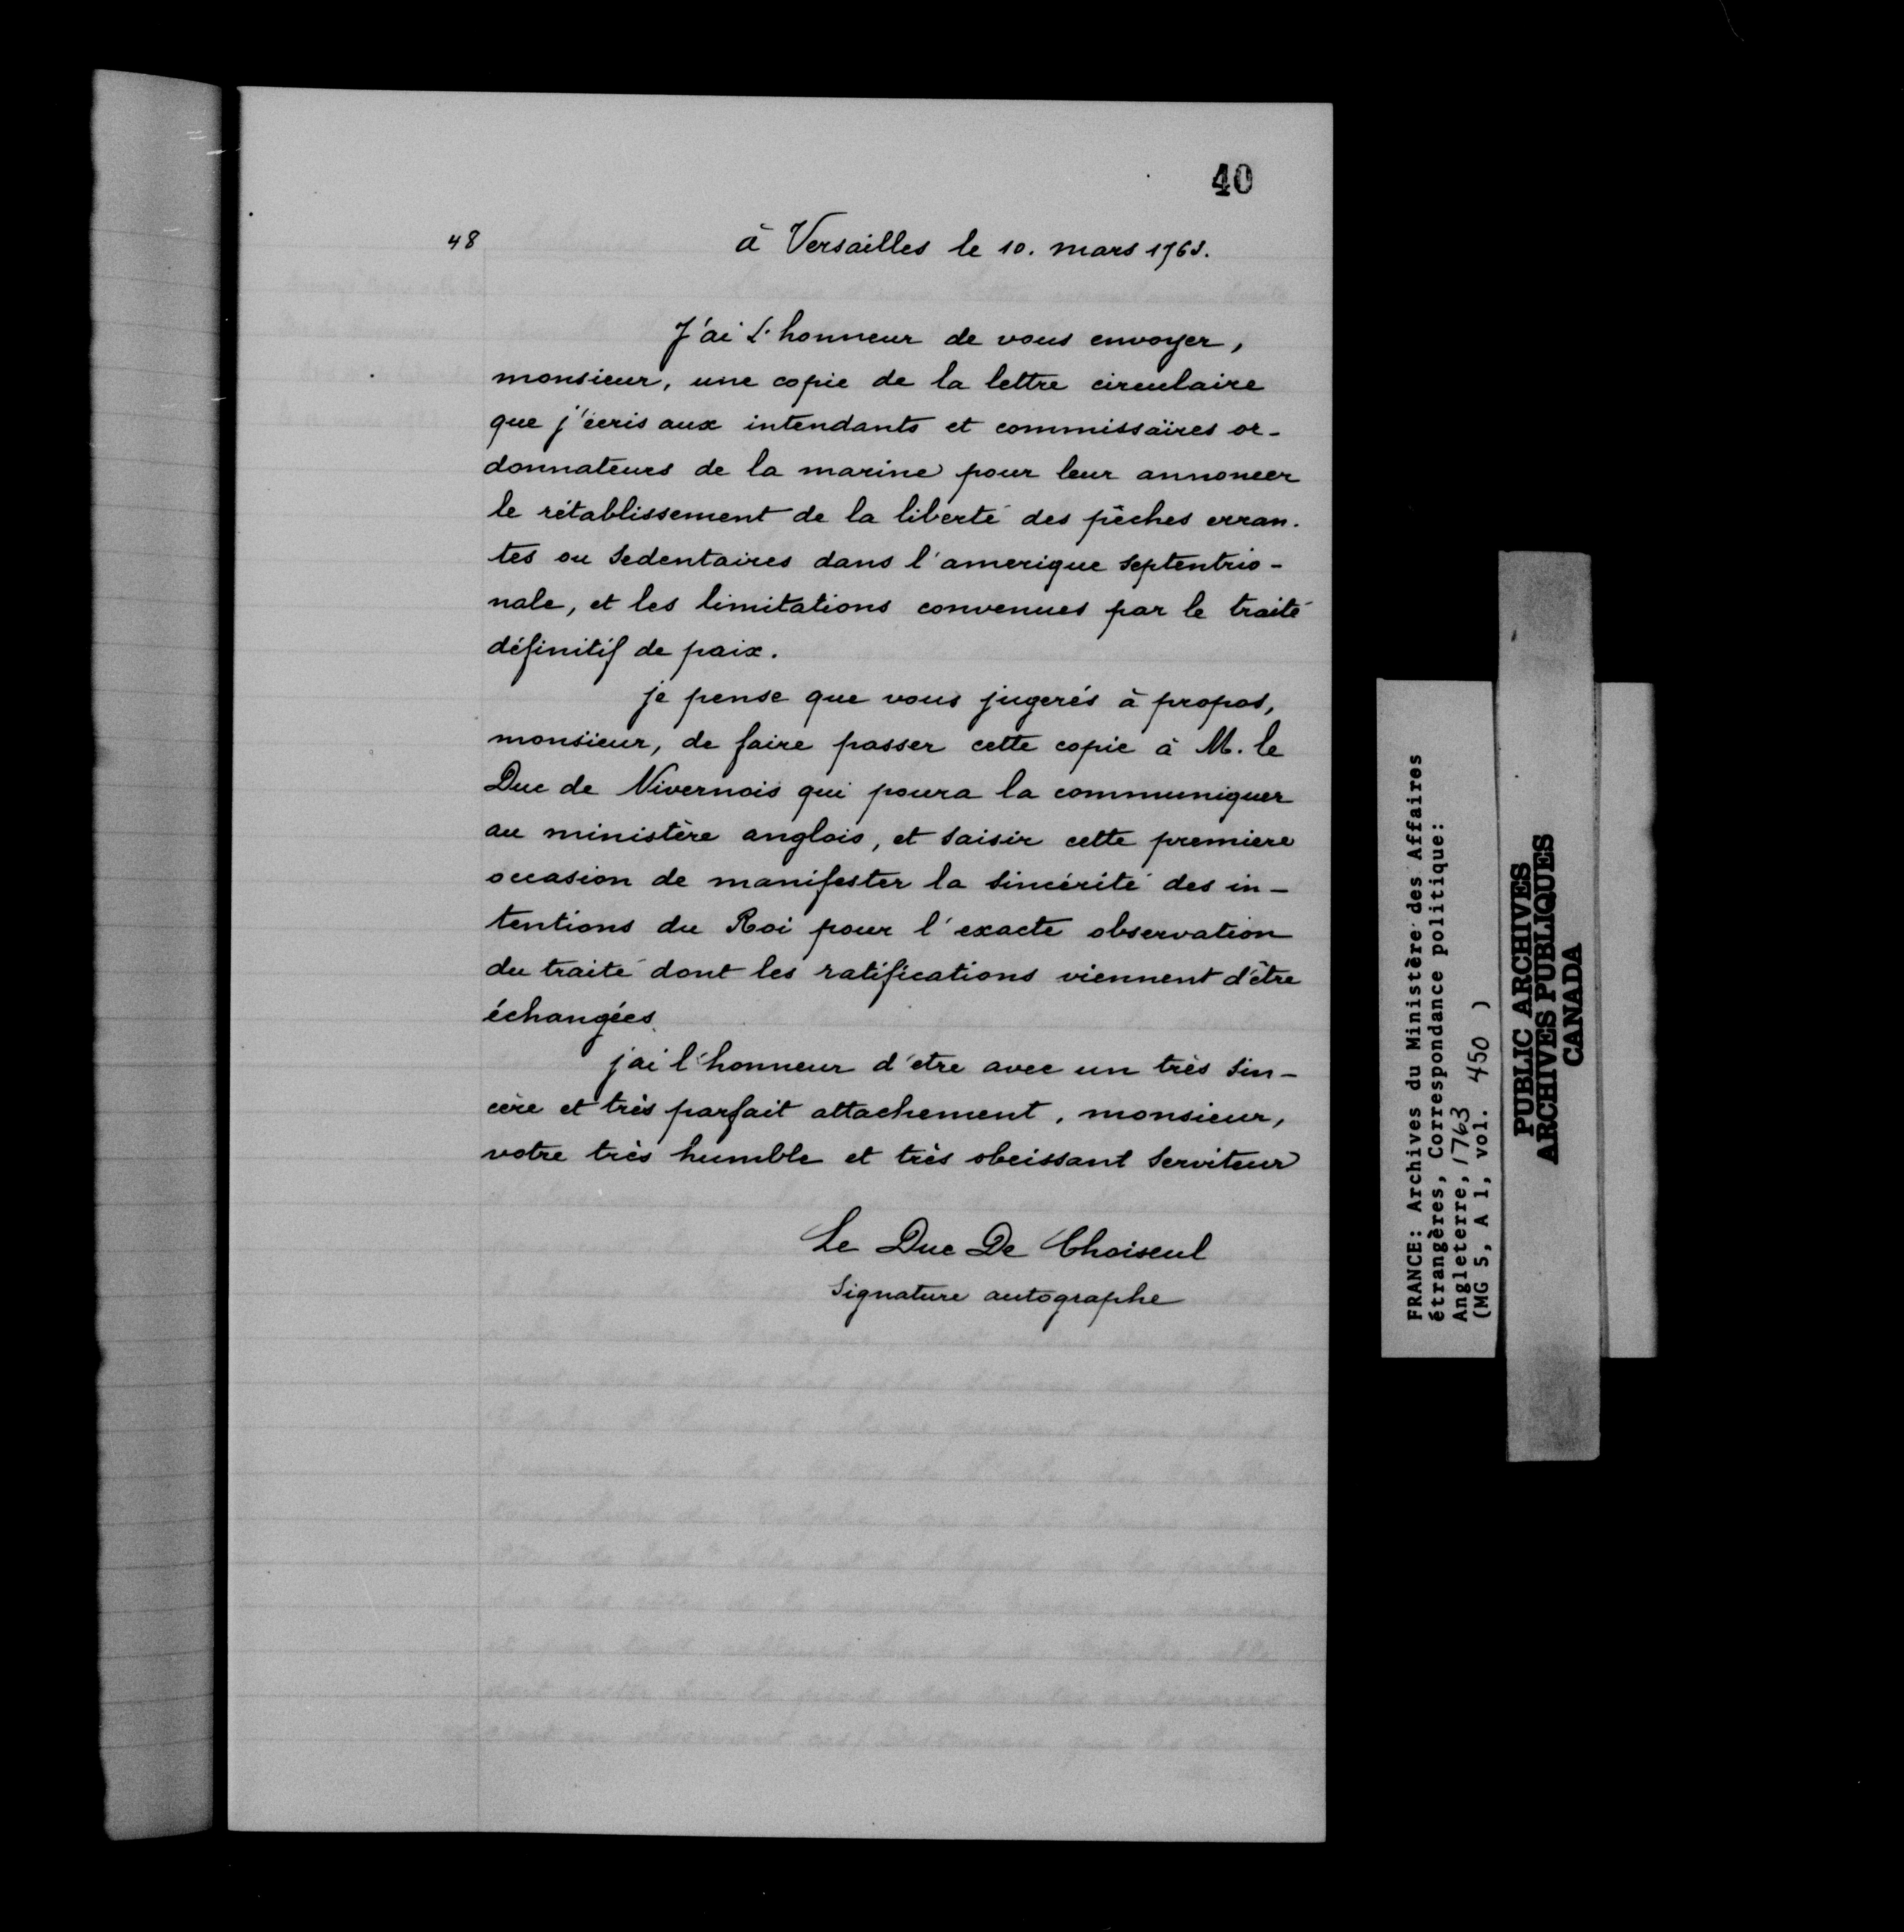 40
48
à Versailles le 10. mars 1763.
J'ai l'honneur de vous envoyer,
monsieur, une copie de la lettre circulaire
que j'écris aux intendants et commissaires or-
donnateurs de la marine pour leur annoncer
le rétablissement de la liberté des pêches erran-
tes ou sedentaires dans l'amerique septentrio-
nale, et les limitations convenues par le traité
définitif de paix.
je pense que vous jugerés à propos,
monsieur, de faire passer cette copie à M. le
Duc de Nivernois qui poura la communiquer
au ministère anglois, et saisir cette premiere
occasion de manifester la sincérité des in-
tentions du Roi pour l'exacte observation
du traité dont les ratifications viennent d'être
échangées.
j'ai l'honneur d'etre avec un très sin-
cère et très parfait attachement, monsieur,
votre très humble et très obeissant serviteur
Le Duc De Choiseul
Signature autographe
FRANCE: Archives du Ministère des Affaires
étrangères, Correspondance politique:
Angleterre, 1763
(MG 5, A 1, vol. 450 )
PUBLIC ARCHIVES
ARCHIVES PUBLIQUES
CANADA